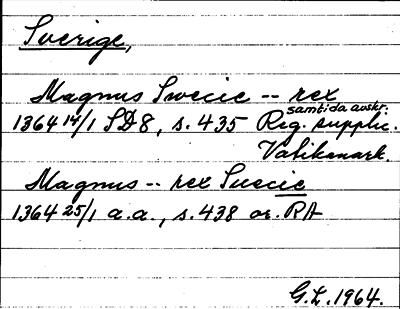 Sverige,
Magnus Swecie -- rex
samtida avskr.
1364 14/1 SD 8, s. 435 Reg. supplic.
Vatikanark.
Magnus -- rex Suecie
1364 25/1 a.a., s. 438 or. RA
G.L. 1964.